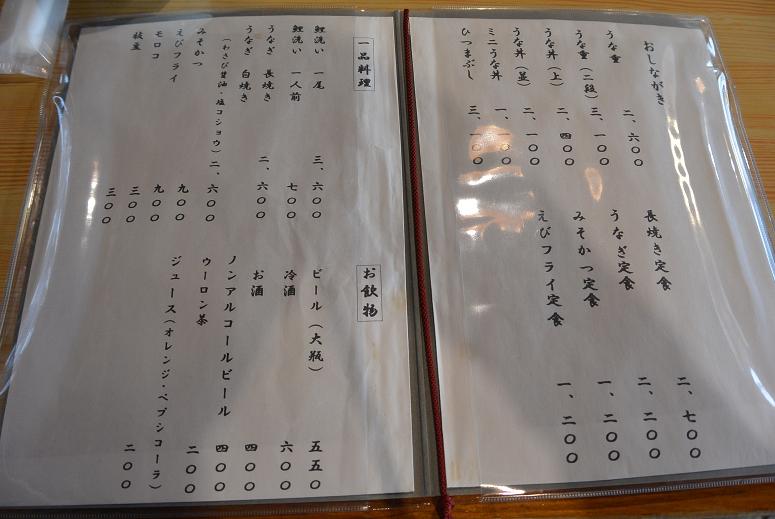 おしながき
うな重 二、六〇〇
うな重（二段） 三、一〇〇
うな丼（上） 二、四〇〇
うな丼（並） 二、一〇〇
ミニうな丼
ひつまぶし 三、一〇〇
長焼き定食 二、七〇〇
うなぎ定食 二、二〇〇
みそかつ定食 一、二〇〇
えびフライ定食 一、二〇〇
一品料理
鯉洗い 一尾 三、六〇〇
鯉洗い 一人前 七〇〇
うなぎ 長焼き 二、六〇〇
うなぎ 白焼き
（わさび醤油・塩コショウ） 二、六〇〇
みそかつ 九〇〇
えびフライ 九〇〇
モロコ 三〇〇
枝豆 三〇〇
お飲物
ビール（大瓶） 五五〇
冷酒 六〇〇
お酒 四〇〇
ノンアルコールビール 四〇〇
ウーロン茶 二〇〇
ジュース（オレンジ・ペプシコーラ） 二〇〇